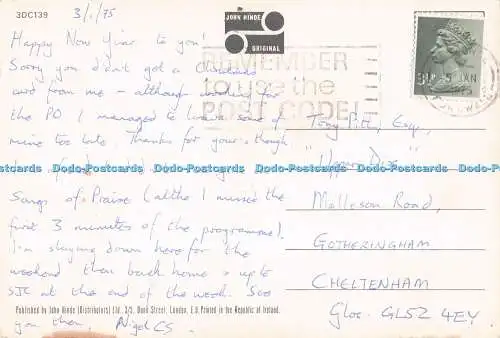 3DC139
3/1/75
JOHN HINDE
ORIGINAL
Happy New Year to you!
Sorry you didn't get a
card from me - although working for
the PO I managed to leave some of
mine too late. Thanks for yours, though
Songs of Praise (altho I missed the
first 3 minutes of the programme).
I'm staying down here for the
weekend then back home & up to
SJC at the end of the week. See
you then, Nigel CS.
REMEMBER
to use the
POST CODE!
JAN
1975
Tony Esq.,
Malleson Road,
GOTHERINGHAM
CHELTENHAM
Glos. GL52 4EY.
Published by John Hinde (Distributors) Ltd., Bond Street, London, E.5 Printed in the Republic of Ireland.
Dodo-Postcards Dodo-Postcards Dodo-Postcards Dodo-Postcards Dodo-Postcards